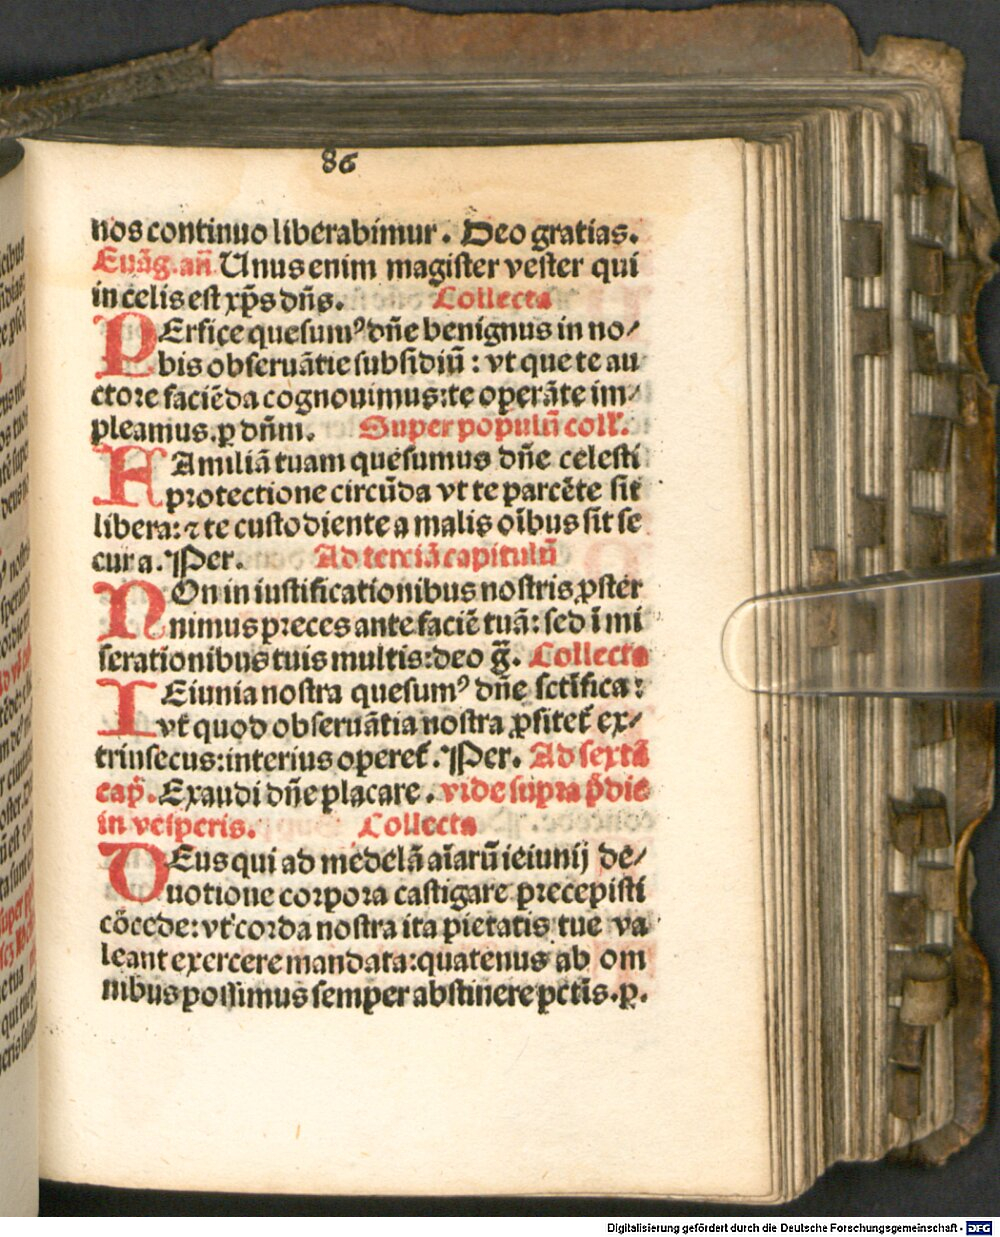 86
nos continuo liberabimur. Deo gratias.
Euãg. añ Unus enim magister vester qui
in celis est xp̃s dñs. Collecta
PErfice quesumꝰ dñe benignus in no/
bis obseruãtie subsidiũ : vt que te au
ctore faciẽda cognouimus: te operãte im/
pleamus. p dñm. Super populũ coll'.
FAmiliã tuam quesumus dñe celesti
protectione circũda vt te parcẽte sit
libera: ⁊ te custodiente a malis oĩbus sit se
cura. Per. Ad terciã capitulũ
NOn in iustificationibus nostris ꝓster
nimus preces ante faciẽ tuã: sed ĩ mi
serationibus tuis multis: deo g̃. Collecta
IEiunia nostra quesumꝰ dñe sctĩfica :
vt quod obseruãtia nostra ꝓfitet̃ ex/
trinsecus: interius operet̃. Per. Ad sextã
cap̃. Exaudi dñe placare. vide supra p̃die
in vesperis. Collecta
DEus qui ad medelã aĩarũ ieiunij de/
uotione corpora castigare precepisti
cõcede: vt corda nostra ita pietatis tue va
leant exercere mandata: quatenus ab om
nibus possimus semper abstinere pctĩs. p.
Digitalisierung gefördert durch die Deutsche Forschungsgemeinschaft - DFG